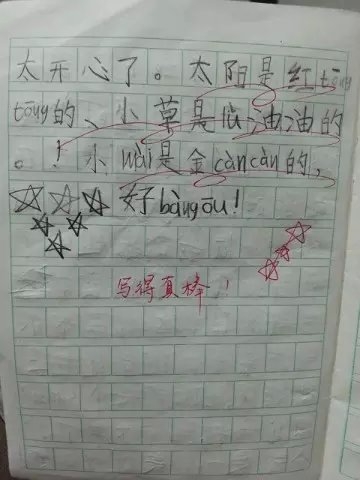 太开心了。太阳是红tōng
tōng的、小草是lǜ油油的
。！小mài是金càncàn的，
好bàngōu！
写得真棒！